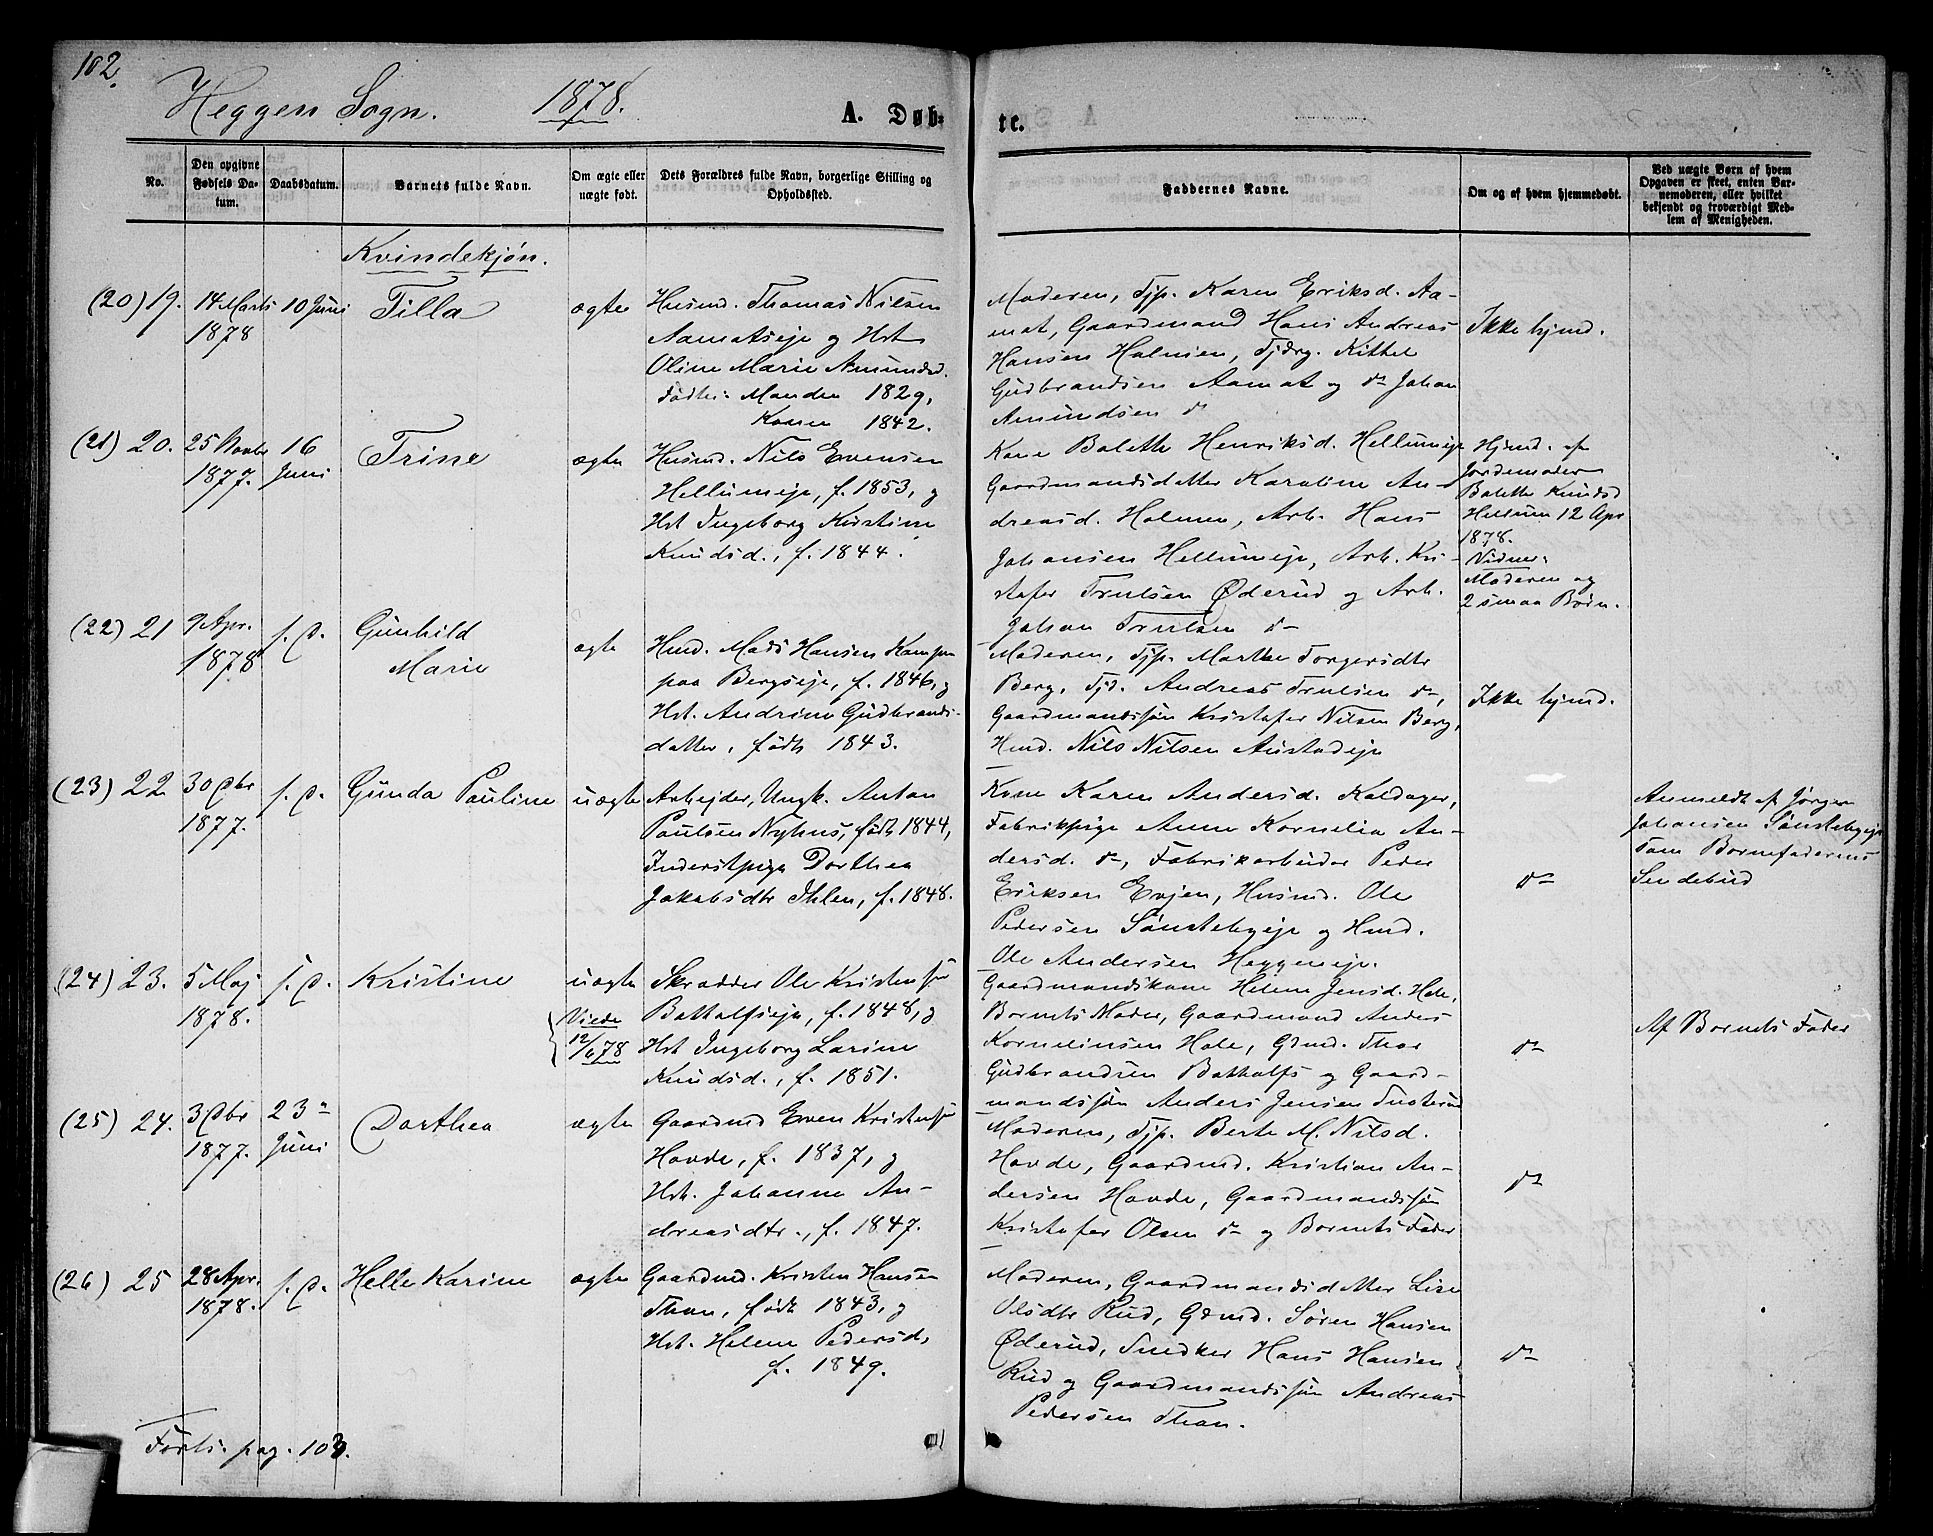 102.
Heggen Sogn. 1878. A. Døb-
te.
No.
Den opgivne Fødsels Da-
tum.
Daabsdatum.
Barnets fulde Navn.
Om ægte eller
uægte født.
Dets Forældres fulde Navn, borgerlige Stilling og
Opholdssted.
Faddernes Navne.
Om og af hvem hjemmedøbt.
Ved uægte Børn af hvem
Opgaven er skeet, enten Bar-
nemoderen, eller hvilket
bekjendt og troværdigt Med-
lem af Menigheden.
Kvindekjøn.
(20) 19.
14 Marts
1878
10 Juni
Tilla
ægte
Husmd. Thomas Nilsen
Aamatseje og Hst
Oline Marie Amundsd.
Født: Manden 1829,
Konen 1842.
Moderen, Tjp. Karen Eriksd. Aa-
mat, Gaardmand Hans Andreas
Hansen Holmen, Tjdrg. Kittel
Gudbrandsen Aamat og do Johan
Amundsen do
Ikke hjmd.
(21) 20.
25 Novbr
1877.
16
Juni
Trine
ægte
Husmd. Nils Evensen
Hellumeje, f. 1853, og
Hst Ingeborg Kristine
Knudsd., f. 1844.
Kone Bolette Henriksd. Hellumeje
Gaardmandsdatter Karoline An-
dreasd. Holmen, Arb. Hans
Johansen Hellumeje, Arb. Kri-
stofer Trulsen Øderud og Arb.
Johan Trulsen do
Hjmd. af
Jordemoder
Bolette Knudsd
Hellum 12 Apr
1878.
Vidner:
Moderen og
2 smaa Børn.
(22) 21
9 Apr.
1878
s. D.
Gunhild
Marie
ægte
Hmd. Mads Hansen Kampen
paa Bergseje, f. 1846, og
Hst. Andrine Gudbrands-
datter, født 1843.
Moderen, Tjp. Marthe Torgersdtr
Berg, Tjd. Andreas Trulsen do,
Gaardmandssøn Kristofer Nilsen Berg,
Hmd. Nils Nilsen Austadeje
Ikke hjmd.
(23) 22
30 Dbr
1877.
s. D.
Gunda Pauline
uægte
Arbejder, Ungk. Anton
Paulsen Nyhus, født 1844,
Inderstpige Dorthea
Jakobsdtr Ihlen, f. 1848.
Kone Karen Andersd. Koldager,
Fabrikpige Anne Kornelia An-
dersd. do, Fabrikarbeider Peder
Eriksen Evjen, Husmd. Ole
Pedersen Sønstebyeje og Hmd.
Ole Andersen Heggeneje.
do
Anmeldt af Jørgen
Johansen Sønstebyeje
som Barnefaderens
Sendebud
(24) 23.
5 Maj
1878.
s. D.
Kristine
uægte
Viede
12/6 78
Skrædder Ole Kristensøn
Bottolfseje, f. 1848, og
Hst Ingeborg Larine
Knudsd., f. 1851.
Gaardmandskone Helene Jensd. Hole,
Barnets Moder, Gaardmand Anders
Korneliusen Hole, Grmd. Thor
Gudbrandsen Bottolfs og Gaard-
mandssøn Anders Jensen
do
Af Barnets Fader
(25) 24.
3 Dbr
1877.
23de
Juni
Dorthea
ægte
Gaardmd Even Kristensøn
Hovde, f. 1837, og
Hst. Johanne An-
dreasdtr., f. 1847.
Moderen, Tjp. Berte M. Nilsd.
Hovde, Gaardmd. Kristian An-
dersen Hovde, Gaardmandssøn
Kristofer Olsen do og Barnets Fader
do
(26) 25
28 Apr.
1878.
s. D.
Helle Karine
ægte
Gaardmd. Kristen Hansen
Thon, født 1843, og
Hst. Helene Pedersd,
f. 1849.
Moderen, Gaardmandsdatter Lise
Olsdtr Rud, Grmd. Søren Hansen
Øderud, Snedker Hans Hansen
Rud og Gaardmandssøn Andreas
Pedersen Thon.
do
Forts. pag. 103.